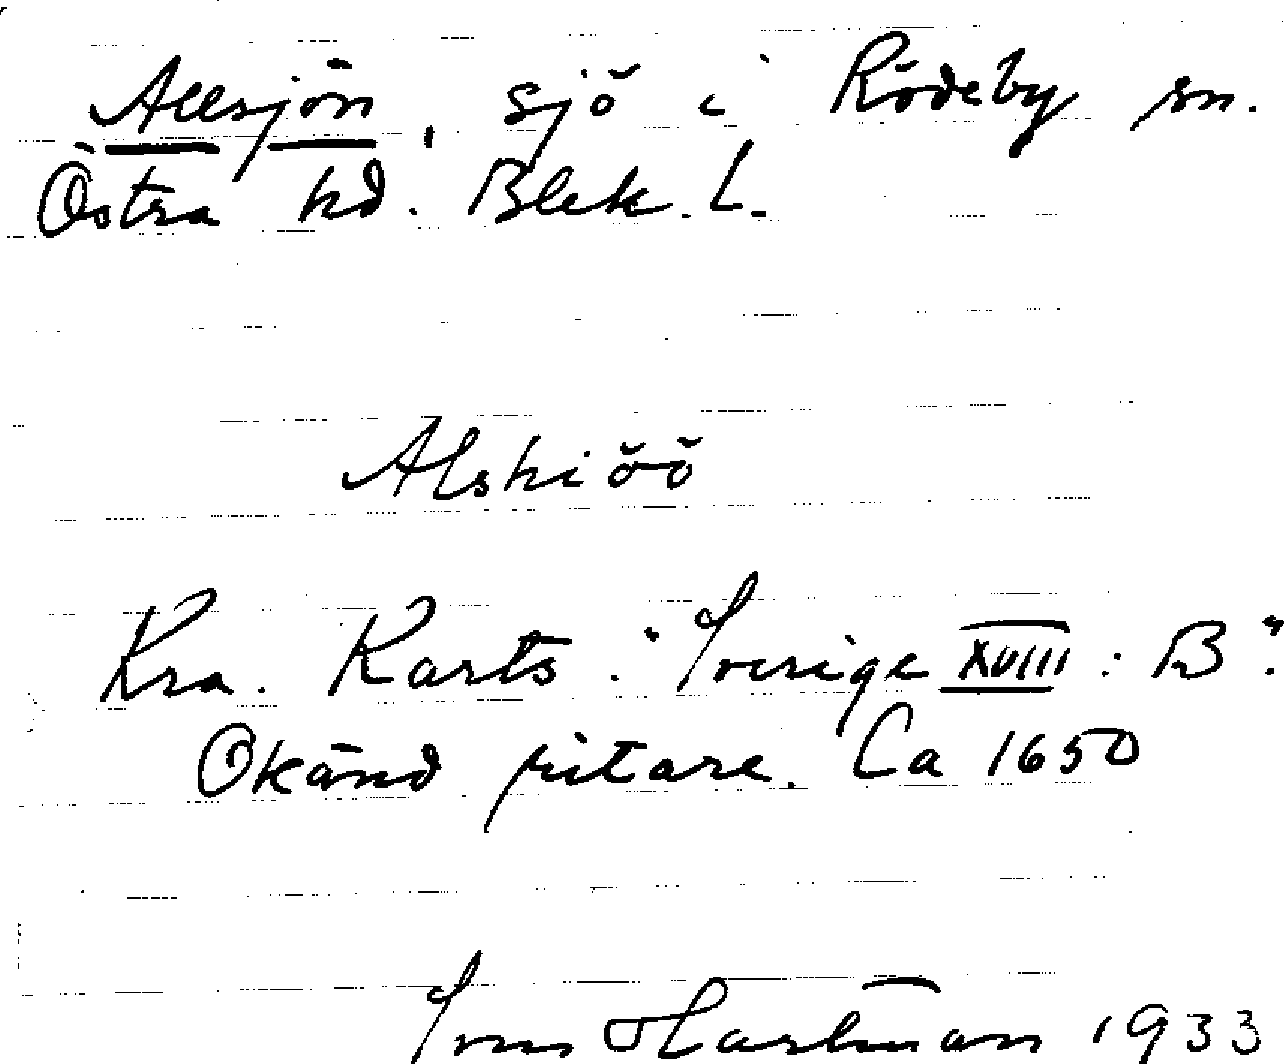 Allsjön, sjö i Rödeby sn.
Östra hd. Blek. L.
Alskiöö
Kra. Karts. "Sverige XVIII : B".
Okänd ritare. Ca 1650
Sven Hartman 1933